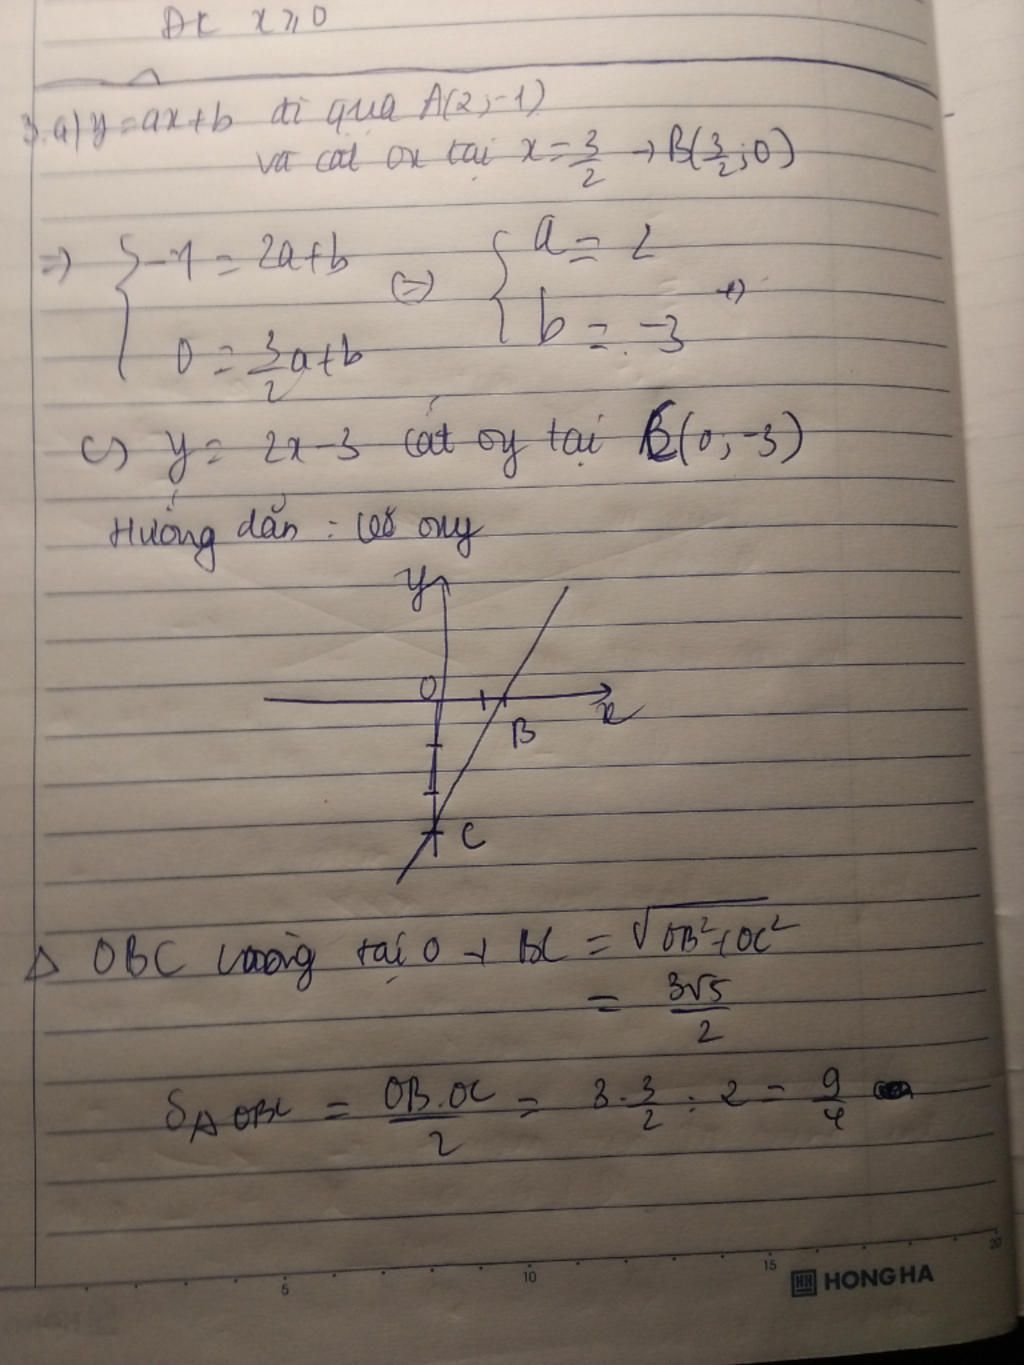 ĐK x ≥ 0
3. a) y = ax + b đi qua A(2; -1)
và cắt ox tại x = 3/2 → B(3/2; 0)
=> { -1 = 2a + b <=> { a = 2
0 = 3/2 a + b b = -3
c) y = 2x - 3 cắt oy tại C(0; -3)
Hướng dẫn : vẽ oxy
y
O
B x
C
Δ OBC vuông tại O → BC = √(OB² + OC²)
= 3√5/2
SΔOBC = OB.OC/2 = 3 . 3/2 : 2 = 9/4
5 10 15 20
HH HONG HA